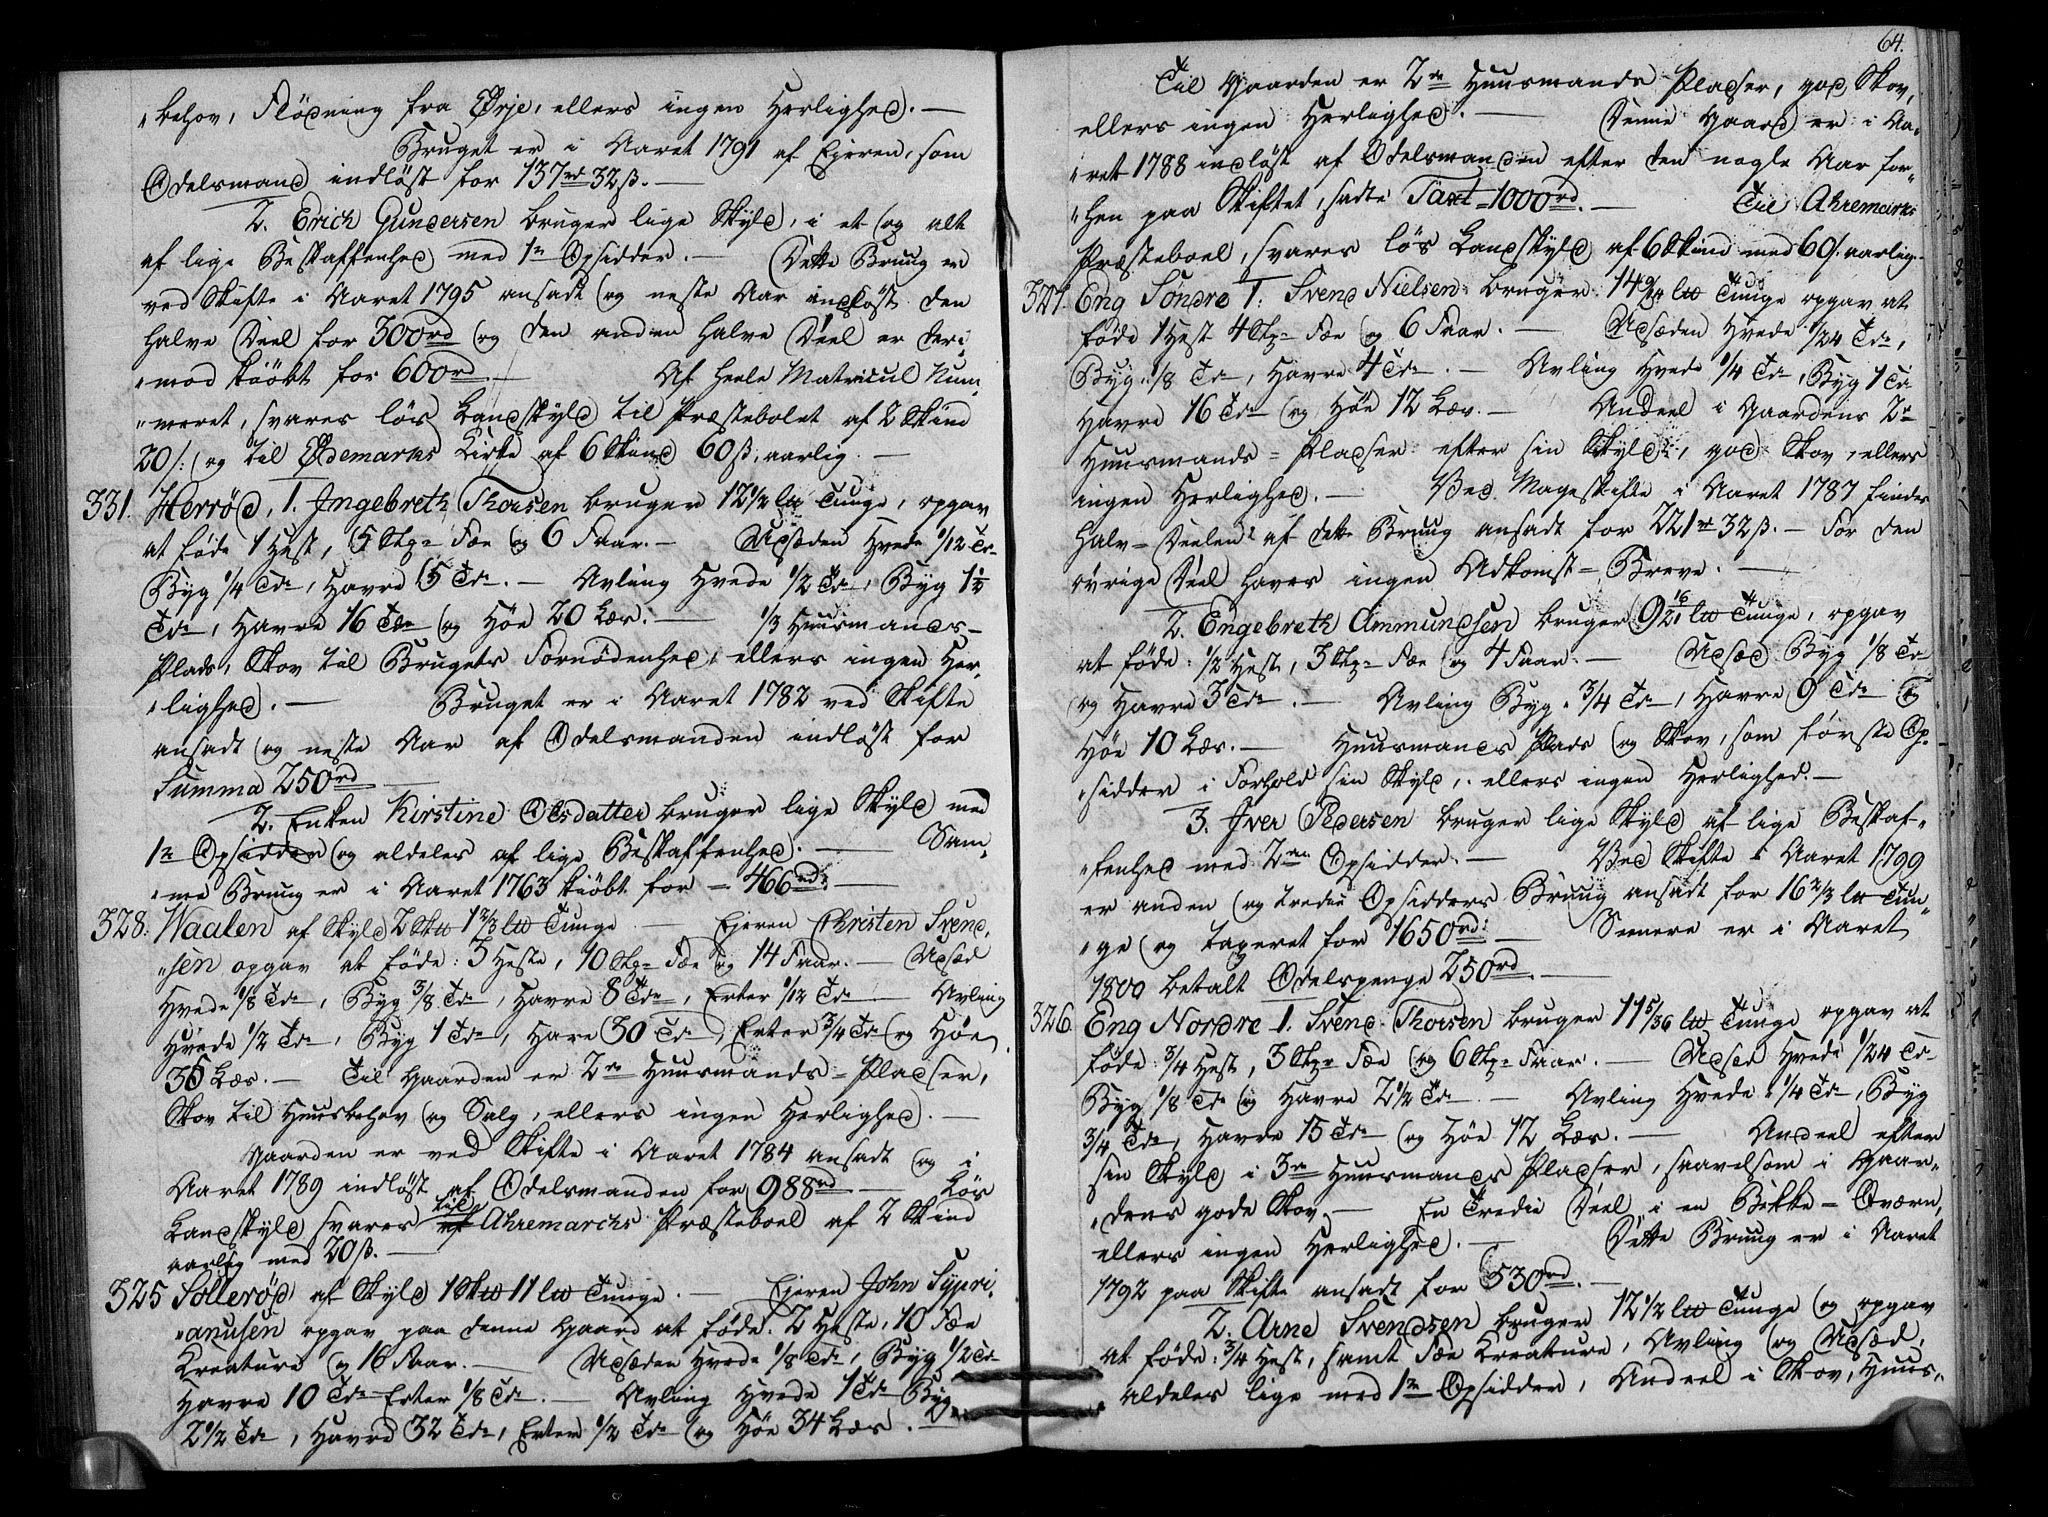 „behov, Flödning fra Ørje, ellers ingen Herlighed. —
Bruget er i Aaret 1791 af Ejeren, som
Odelsmand indløst for 137rd 32ß. —
2. Erich Gundersen bruger lige Skyld, i et og alt
af lige Beskaffenhed med 1te Opsidder. — Dette Bruug er
ved Skifte i Aaret 1795 ansadt og neste Aar indløst den
halve Deel for 300rd og den anden halve Deel er deri„
„mod kiöbt for 600rd. — Af heele Matricul Num„
„meret, svares lös Landskyld til Præstebolet af 2 Skind
20/: og til Ødemarks Kirke af 6 Skind 60ß. aarlig. —
331. Herröd, 1. Ingebreth Thorsen bruger 12½ lb Tunge, opgav
at föde 1 Hest, 5 Stkr Fæe og 6 Faar. — Udsæden Hvede 1/12 Tde
Byg 1/4 Tde, Havre 5 Tdr. — Avling Hvede 1/2 Tde, Byg 1½
Tde, Havre 16 Tdr og Höe 20 Læs. — 1/3 Huusmands-
Plads, Skov til Brugets Fornödenhed, ellers ingen Her„
„lighed. — Bruget er i Aaret 1782 ved Skifte
ansadt og neste Aar af Odelsmanden indløst for
Summa 250rd —
2. Enken Kirstine Olsdatter bruger lige Skyld med
1te Opsidder og aldeles af lige Beskaffenhed. — Sam„
„me Bruug er i Aaret 1763 kiöbt for — 466rd. —
328. Waalen af Skyld 2 Skb 1 2/3 lb Tunge — Ejeren Christen Svend„
„sen opgav at föde: 3 Heste, 10 Stkr Fæe og 14 Faar. — Udsæd
Hvede 1/8 Tde, Byg 3/8 Tde, Havre 8 Tdr, Erter 1/12 Tde — Avling
Hvede 1/2 Tde, Byg 1 Tde, Havre 30 Tdr, Erter 3/4 Tde og Höe
35 Læs. — Til Gaarden er 2de Huusmands-Pladser,
Skov til Huusbehov og Salg, ellers ingen Herlighed. —
Gaarden er ved Skifte i Aaret 1784 ansadt og i
Aaret 1789 indløst af Odelsmanden for 988rd — Lös
Landskyld svares til Ahremarchs Præsteboel af 2 Skind
aarlig med 20ß. —
325 Solleröd af Skyld 1 Skb 11 lb Tunge. — Ejeren John Sypri„
„anusen opgav paa denne Gaard at föde: 2 Heste, 10 Fæe
Kreature og 16 Faar. — Udsæden Hvede 1/8 Tde, Byg 1/2 Tde
Havre 10 Tdr Erter 1/8 Tde. — Avling Hvede 1 Tde Byg
2½ Tde, Havre 32 Tdr, Erter 1/2 Tde og Höe 34 Læs. —
64.
Til Gaarden er 2de Huusmands Pladser, god Skov,
ellers ingen Herlighed. — Denne Gaard er i Aa„
„ret 1788 indløst af Odelsmanden efter den nogle Aar for„
„hen paa Skiftet, sadte Taxt = 1000rd. — Til Ahremarks
Præsteboel, svares lös Landskyld af 6 Skind med 60/. aarlig.
327. Eng Söndre 1. Svend Nielsen bruger 14 lb Tunge opgav at
föde 1 Hest 4 Stkr Fæe og 6 Faar. — Udsæden Hvede 1/24 Tde,
Byg 1/8 Tde, Havre 4 Tdr. — Avling Hvede 1/4 Tde, Byg 1 Tde
Havre 16 Tdr og Höe 12 Læs. — Andeel i Gaardens 2de
Huusmands = Pladser efter sin Skyld, god Skov, ellers
ingen Herlighed. — Ved Mageskifte i Aaret 1787 findes
Halv-Deelen af dette Bruug ansadt for 221rd 32ß. — For den
övrige Deel haves ingen Adkomst = Breve. —
2. Engebreth Ammundsen bruger 9 16/21 lb Tunge, opgav
at föde: 1/2 Hest, 3 Stkr Fæe og 4 Faar. — Udsæd Byg 1/8 Tde
og Havre 3 Tdr. — Avling Byg 3/4 Tde, Havre 9 Tdr og
Höe 10 Læs. — Huusmands Plads og Skov, som förste Op„
„sidder i Forhold sin Skyld, ellers ingen Herlighed. —
3. Iver Pedersen bruger lige Skyld af lige Beskaf„
„fenhed med 2den Opsidder. — Ved Skifte i Aaret 1799
er anden og tredie Opsidders Bruug ansadt for 16 2/3 lb Tun„
„ge og taxeret for 1650rd. — Senere er i Aaret
1800 betalt Odelspenge 250rd. —
326. Eng Nordre 1. Svend Thorsen bruger 11 5/36 lb Tunge opgav at
föde 3/4 Hest, 3 Stkr Fæe og 6 Stkr Faar. — Udsæd Hvede 1/24 Tde
Byg 1/8 Tde og Havre 2½ Tde — Avling Hvede 1/4 Tde, Byg
3/4 Tde, Havre 15 Tdr og Höe 12 Læs. — Andeel efter
sin Skyld i 3de Huusmands Pladser, saavelsom i Gaar„
„dens gode Skov — En Tredie Deel i en Bekke-Qværn,
ellers ingen Herlighed. — Dette Bruug er i Aaret
1792 paa Skifte ansadt for 530rd. —
2. Arne Svendsen bruger 12½ lb Tunge og opgav
at föde: 3/4 Hest, samt Fæe Kreature, Avling og Udsæd,
aldeles lige med 1te Opsidder, Andeel i Skov, Huus„